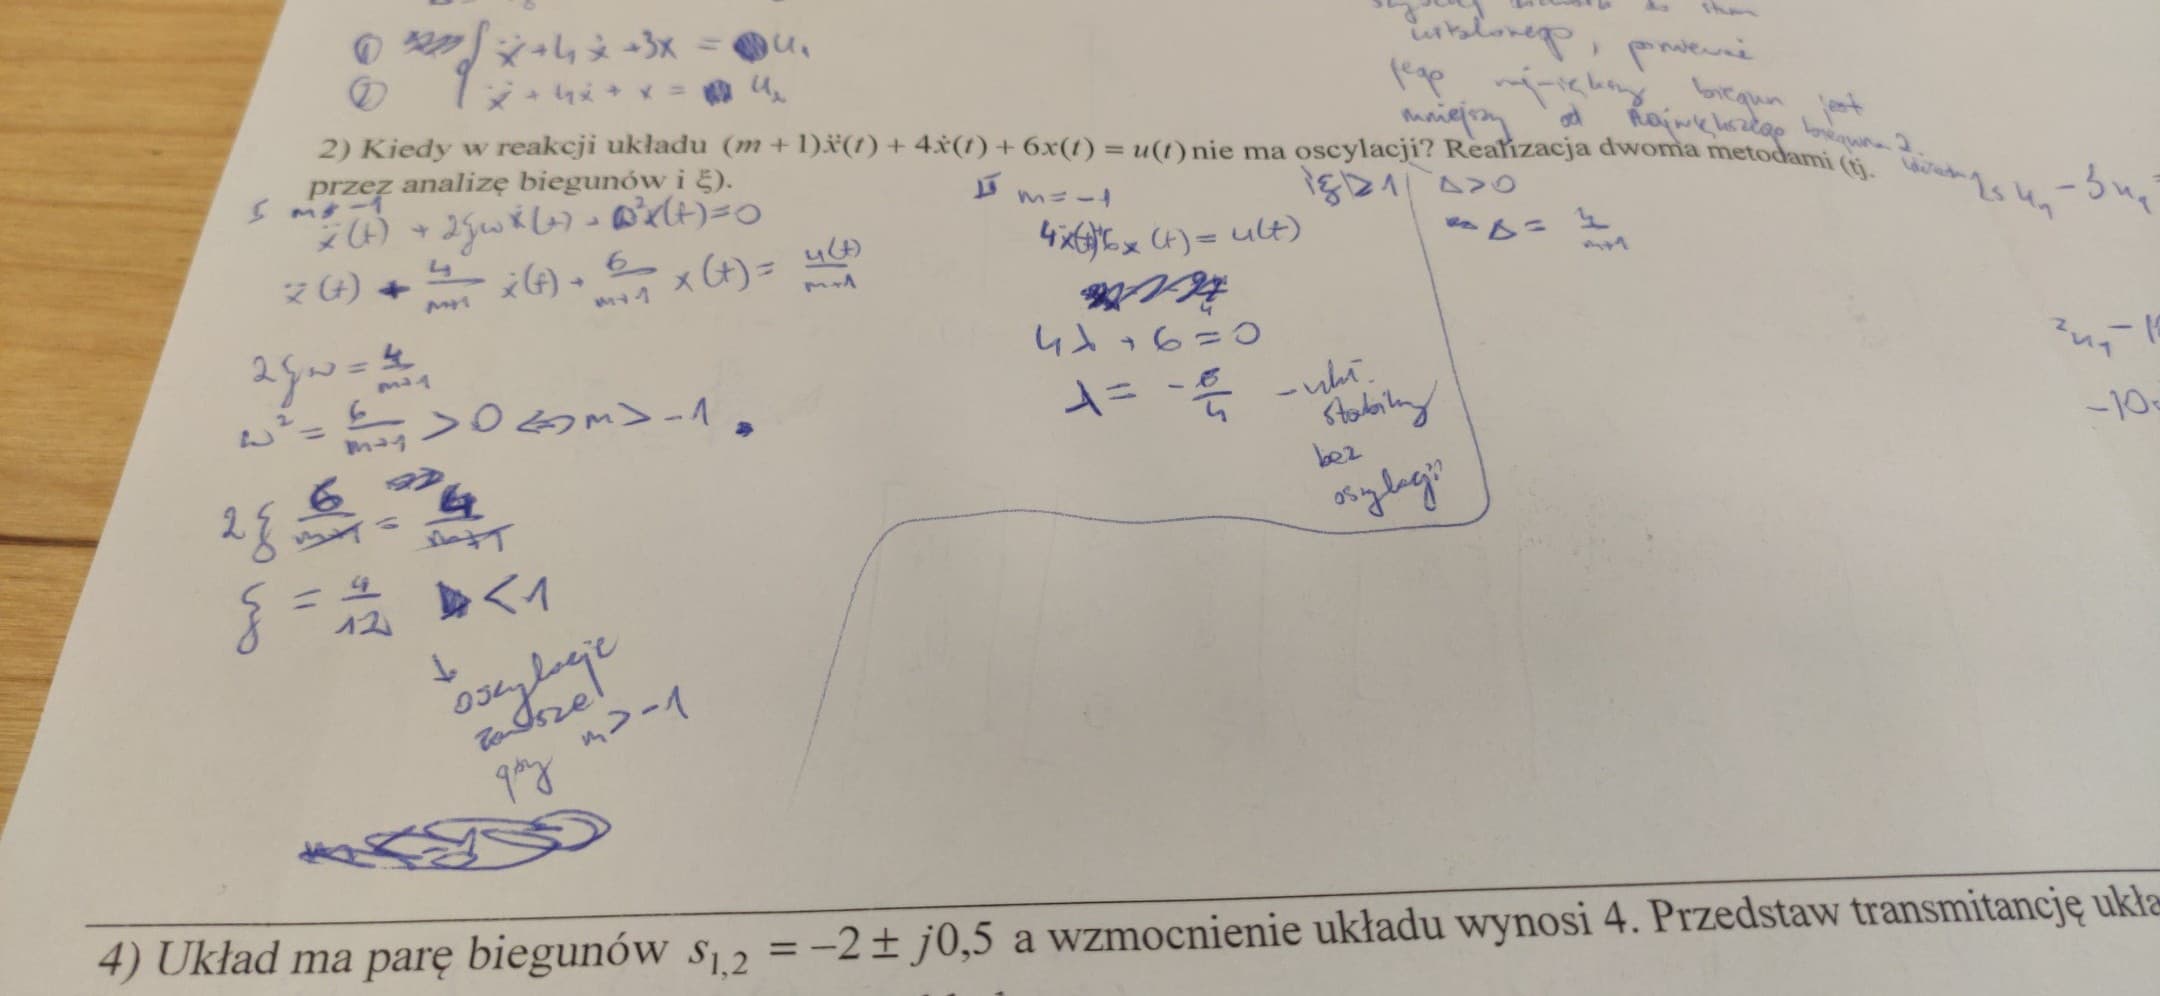 ① { ẍ + 4ẋ + 3x = u₁
② ẍ + 4ẋ + x = u₂
ustalonego, ponieważ
jego największy biegun jest
mniejszy od największego bieguna 2.
2) Kiedy w reakcji układu (m + 1)ẍ(t) + 4ẋ(t) + 6x(t) = u(t) nie ma oscylacji? Realizacja dwoma metodami (tj.
przez analizę biegunów i ξ).
I m ≠ -1
ẍ(t) + 2ξωẋ(t) + ω²x(t) = 0
ẍ(t) + 4/(m+1) ẋ(t) + 6/(m+1) x(t) = u(t)/(m+1)
2ξω = 4/(m+1)
ω² = 6/(m+1) > 0 ⇔ m > -1
2ξ 6/(m+1) = 4/(m+1)
ξ = 4/12 < 1
↓
oscylacje
zawsze
gdy m > -1
II m = -1
4ẋ(t) + 6x(t) = u(t)
4λ + 6 = 0
λ = -6/4 - ukł.
stabilny
bez
oscylacji
ξ ≥ 1 | Δ > 0
Δ = 4/(m+1)
4) Układ ma parę biegunów s₁,₂ = −2 ± j0,5 a wzmocnienie układu wynosi 4. Przedstaw transmitancję ukła